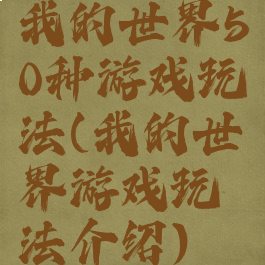 我的世界5
0种游戏玩
法(我的世
界游戏玩
法介绍)